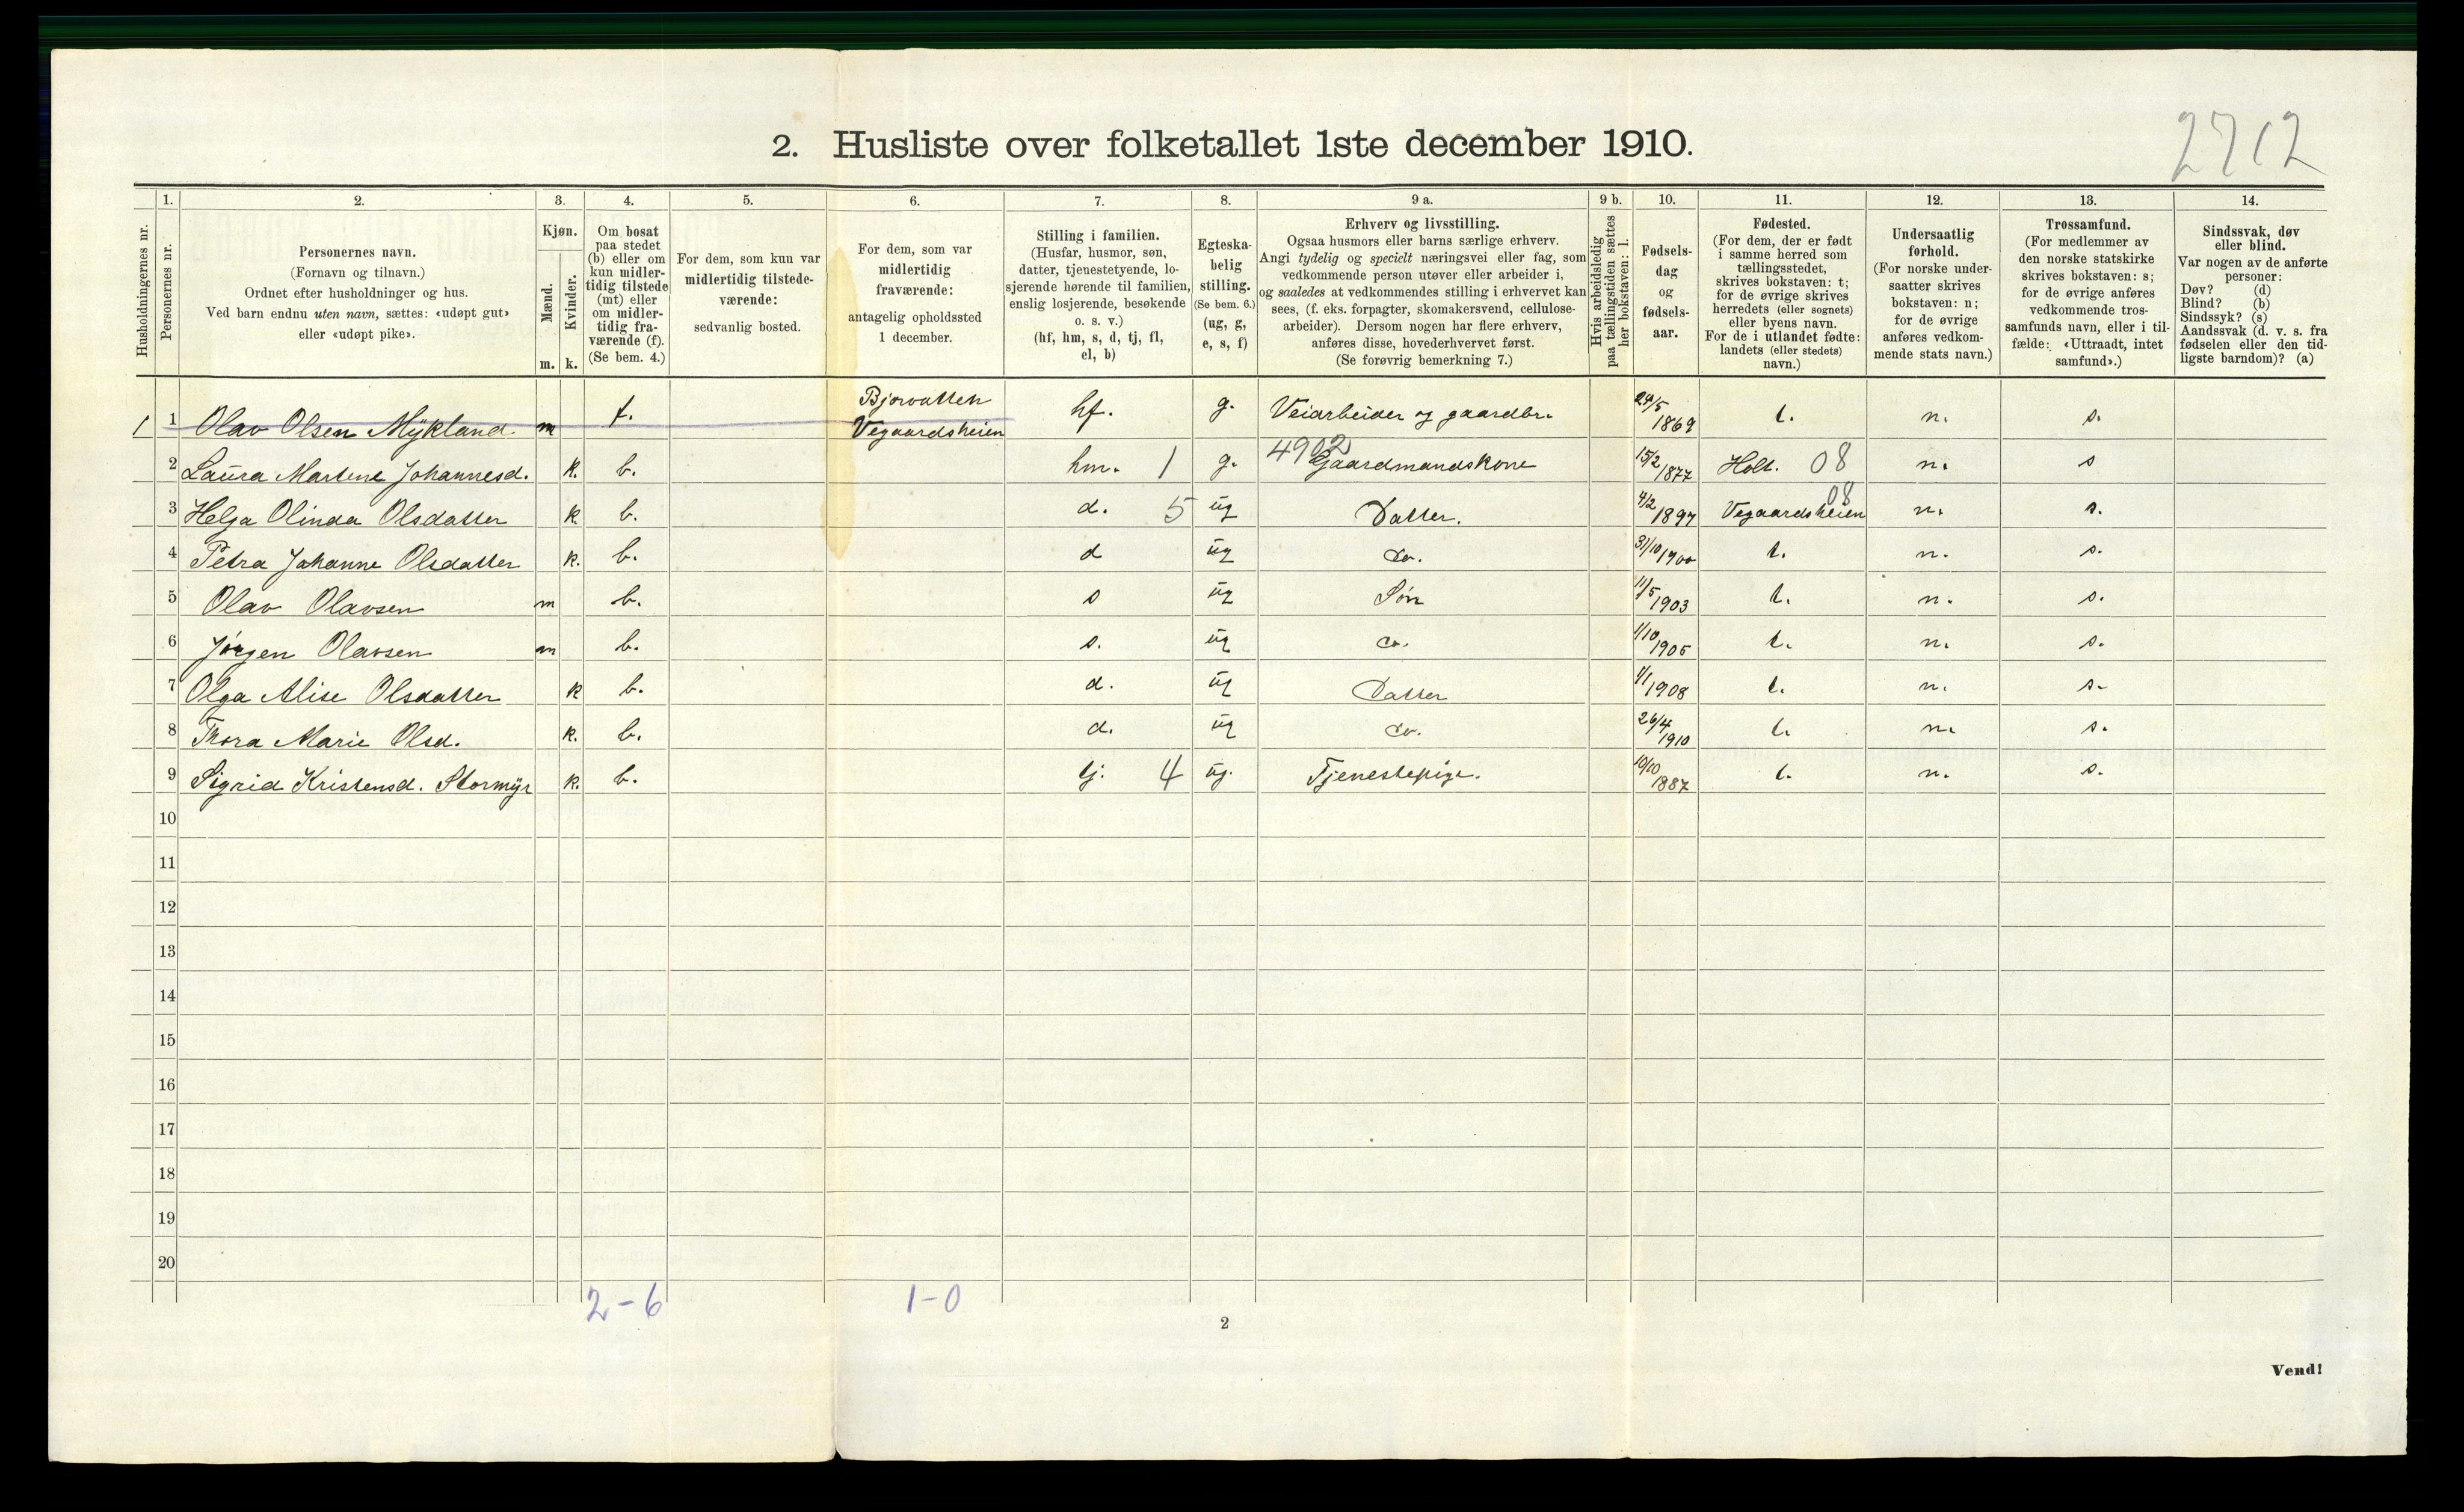 2712
2. Husliste over folketallet 1ste december 1910.
Husholdningernes nr.
1.
Personernes nr.
2.
Personernes navn.
(Fornavn og tilnavn.)
Ordnet efter husholdninger og hus.
Ved barn endnu uten navn, sættes: «udøpt gut»
eller «udøpt pike».
3.
Kjøn.
Mænd.
Kvinder.
m. k.
4.
Om bosat
paa stedet
(b) eller om
kun midler-
tidig tilstede
(mt) eller
om midler-
tidig fra-
værende (f).
(Se bem. 4.)
5.
For dem, som kun var
midlertidig tilstede-
værende:
sedvanlig bosted.
6.
For dem, som var
midlertidig
fraværende:
antagelig opholdssted
1 december.
7.
Stilling i familien.
(Husfar, husmor, søn,
datter, tjenestetyende, lo-
sjerende hørende til familien,
enslig losjerende, besøkende
o. s. v.)
(hf, hm, s, d, tj, fl,
el, b)
8.
Egteska-
belig
stilling.
(Se bem. 6.)
(ug, g,
e, s, f)
9 a.
Erhverv og livsstilling.
Ogsaa husmors eller barns særlige erhverv.
Angi tydelig og specielt næringsvei eller fag, som
vedkommende person utøver eller arbeider i,
og saaledes at vedkommendes stilling i erhvervet kan
sees, (f. eks. forpagter, skomakersvend, cellulose-
arbeider). Dersom nogen har flere erhverv,
anføres disse, hovederhvervet først.
(Se forøvrig bemerkning 7.)
9 b.
Hvis arbeidsledig
paa tællingstiden sættes
her bokstaven: l.
10.
Fødsels-
dag
og
fødsels-
aar.
11.
Fødested.
(For dem, der er født
i samme herred som
tællingsstedet,
skrives bokstaven: t;
for de øvrige skrives
herredets (eller sognets)
eller byens navn.
For de i utlandet fødte:
landets (eller stedets)
navn.)
12.
Undersaatlig
forhold.
(For norske under-
saatter skrives
bokstaven: n;
for de øvrige
anføres vedkom-
mende stats navn.)
13.
Trossamfund.
(For medlemmer av
den norske statskirke
skrives bokstaven: s;
for de øvrige anføres
vedkommende tros-
samfunds navn, eller i til-
fælde: «Uttraadt, intet
samfund».)
14.
Sindssvak, døv
eller blind.
Var nogen av de anførte
personer:
Døv? (d)
Blind? (b)
Sindssyk? (s)
Aandssvak (d. v. s. fra
fødselen eller den tid-
ligste barndom)? (a)
1 1 Olav Olsen Mykland. m f. Bjorvatten Vegaardsheien hf. g. Veiarbeider og gaardbr. 29/5 1869 t. n. s.
2 Laura Martene Johannesd. k. b. hm. 1 g. 4902 Gaardmandskone 15/2 1877 Holt. 08 n. s
3 Helga Olinda Olsdatter k b. d. 5 ug Datter. 4/2 1897 Vegaardsheien 08 n. s.
4 Petra Johanne Olsdatter k. b. d ug do. 31/10 1900 t. n. s.
5 Olav Olavsen m b. s ug Søn 11/5 1903 t. n. s.
6 Jørgen Olavsen m b. s. ug do. 1/10 1905 t. n. s.
7 Olga Alise Olsdatter k b. d. ug Datter 1/1 1908 t. n. s.
8 Thora Marie Olsd. k. b. d. ug do. 26/4 1910 t. n. s.
9 Sigrid Kristensd. Stormyr k. b. tj. 4 ug. Tjenestepige. 10/10 1887 t. n. s.
10
11
12
13
14
15
16
17
18
19
20
2-6 1-0
2
Vend!